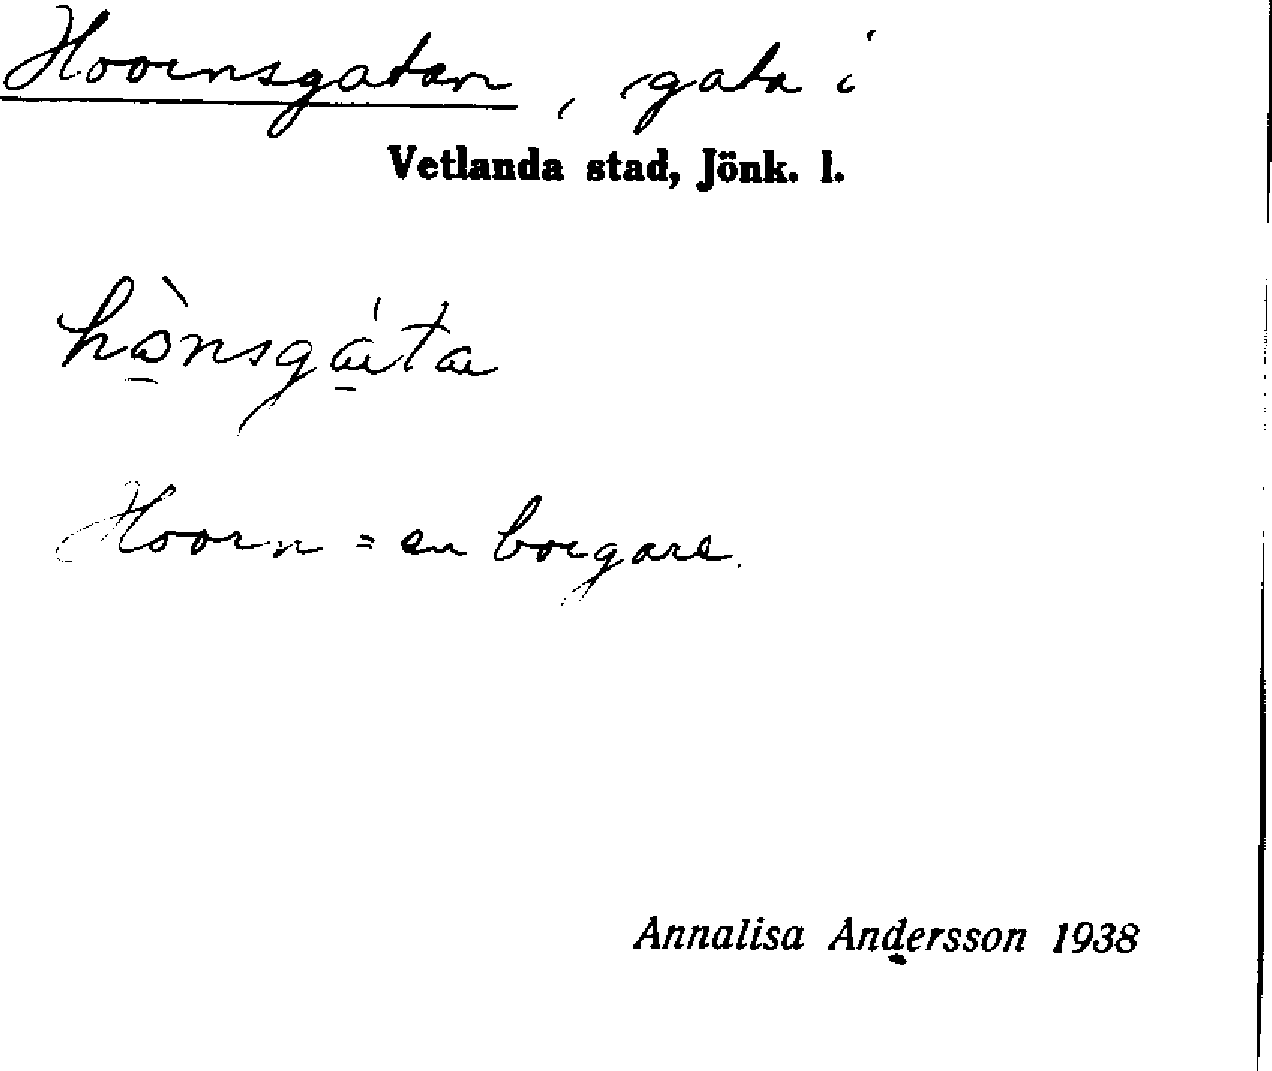 Hoornsgatan, gata i
Vetlanda stad, Jönk. l.
hò̱nsgá̱ta
Hoorn = en borgare.
Annalisa Andersson 1938